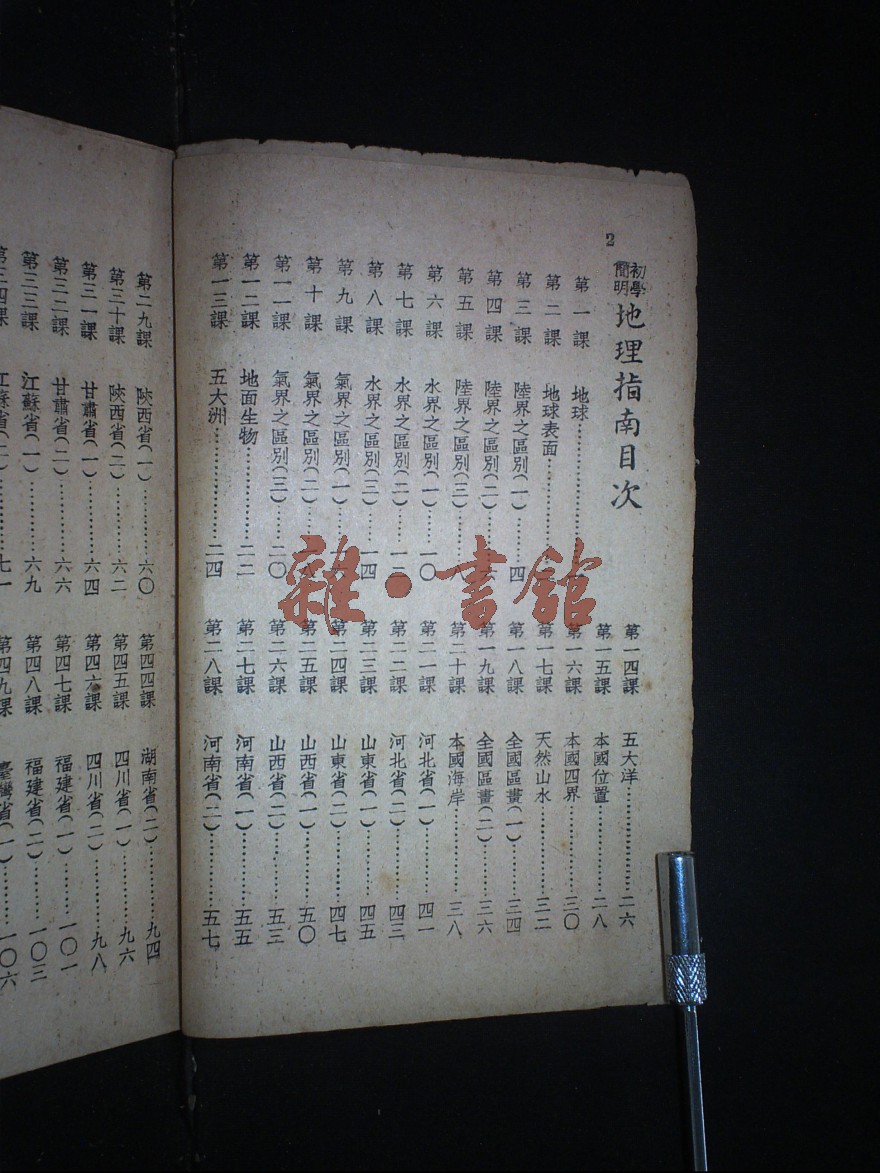 2
初學簡明地理指南目次
第一課 地球……………
第二課 地球表面…………
第三課 陸界之區別(一)……四
第四課 陸界之區別(二)……
第五課 陸界之區別(三)……八
第六課 水界之區別(一)……一〇
第七課 水界之區別(二)……一二
第八課 水界之區別(三)……一四
第九課 氣界之區別(一)……
第十課 氣界之區別(二)……一八
第一一課 氣界之區別(三)……二〇
第一二課 地面生物…………二二
第一三課 五大洲……………二四
第一四課 五大洋……………二六
第一五課 本國位置…………二八
第一六課 本國四界…………三〇
第一七課 天然山水…………三二
第一八課 全國區畫(一)………三四
第一九課 全國區畫(二)………三六
第二十課 本國海岸…………三八
第二一課 河北省(一)………四一
第二二課 河北省(二)………四三
第二三課 山東省(一)………四五
第二四課 山東省(二)………四七
第二五課 山西省(一)………五〇
第二六課 山西省(二)………五三
第二七課 河南省(一)………五五
第二八課 河南省(二)………五七
第二九課 陝西省(一)………六〇
第三十課 陝西省(二)………六二
第三一課 甘肅省(一)………六四
第三二課 甘肅省(二)………六六
第三三課 江蘇省(一)………六九
第三四課 江蘇省(二)………七一
第四四課 湖南省(二)………九四
第四五課 四川省(一)………九六
第四六課 四川省(二)………九八
第四七課 福建省(一)………一〇一
第四八課 福建省(二)………一〇三
第四九課 臺灣省(一)………一〇六
雜·書館